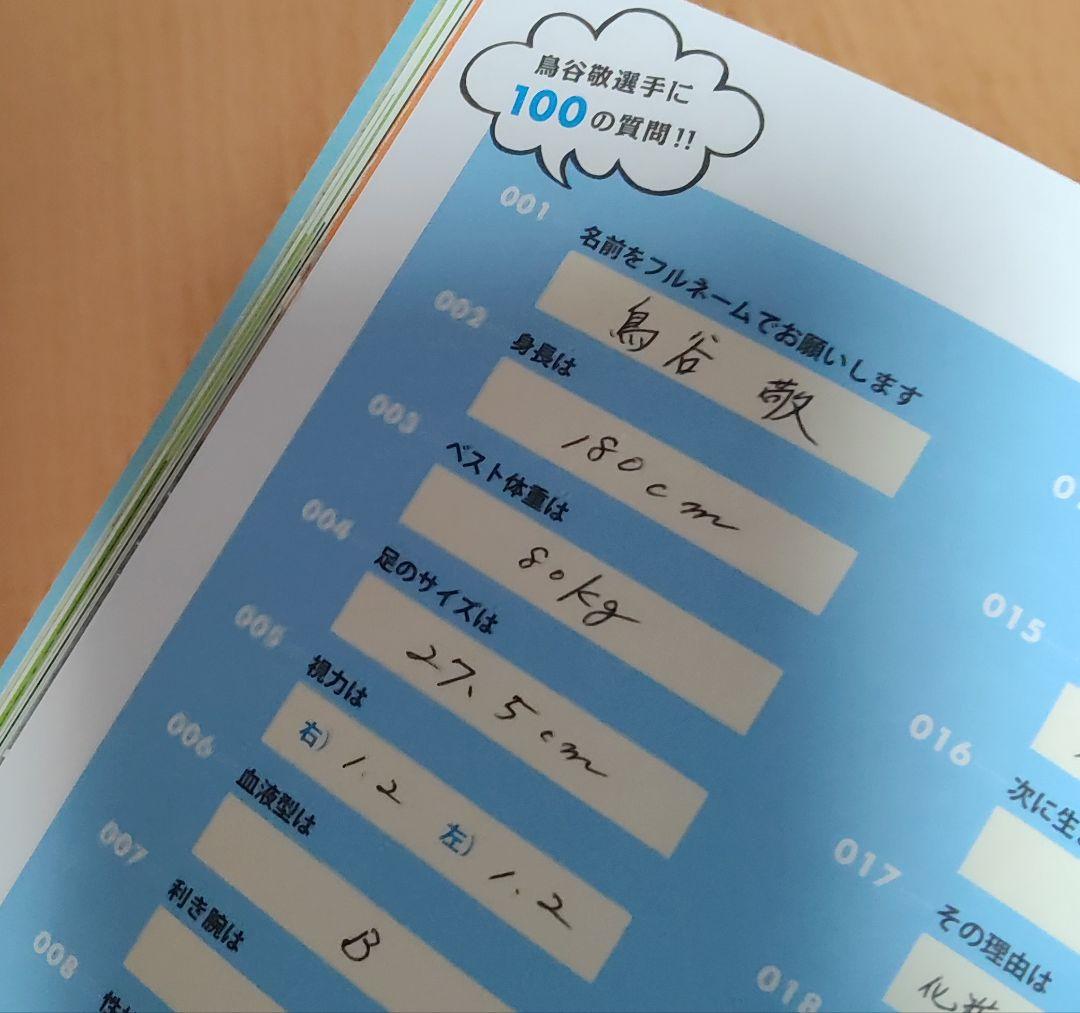 鳥谷敬選手に
100の質問!!
001
名前をフルネームでお願いします
鳥谷 敬
002
身長は
180cm
003
ベスト体重は
80kg
004
足のサイズは
27、5cm
005
視力は
右) 1.2 左) 1.2
006
血液型は
B
007
利き腕は
008
015
016
次に生
017
その理由は
化粧
018